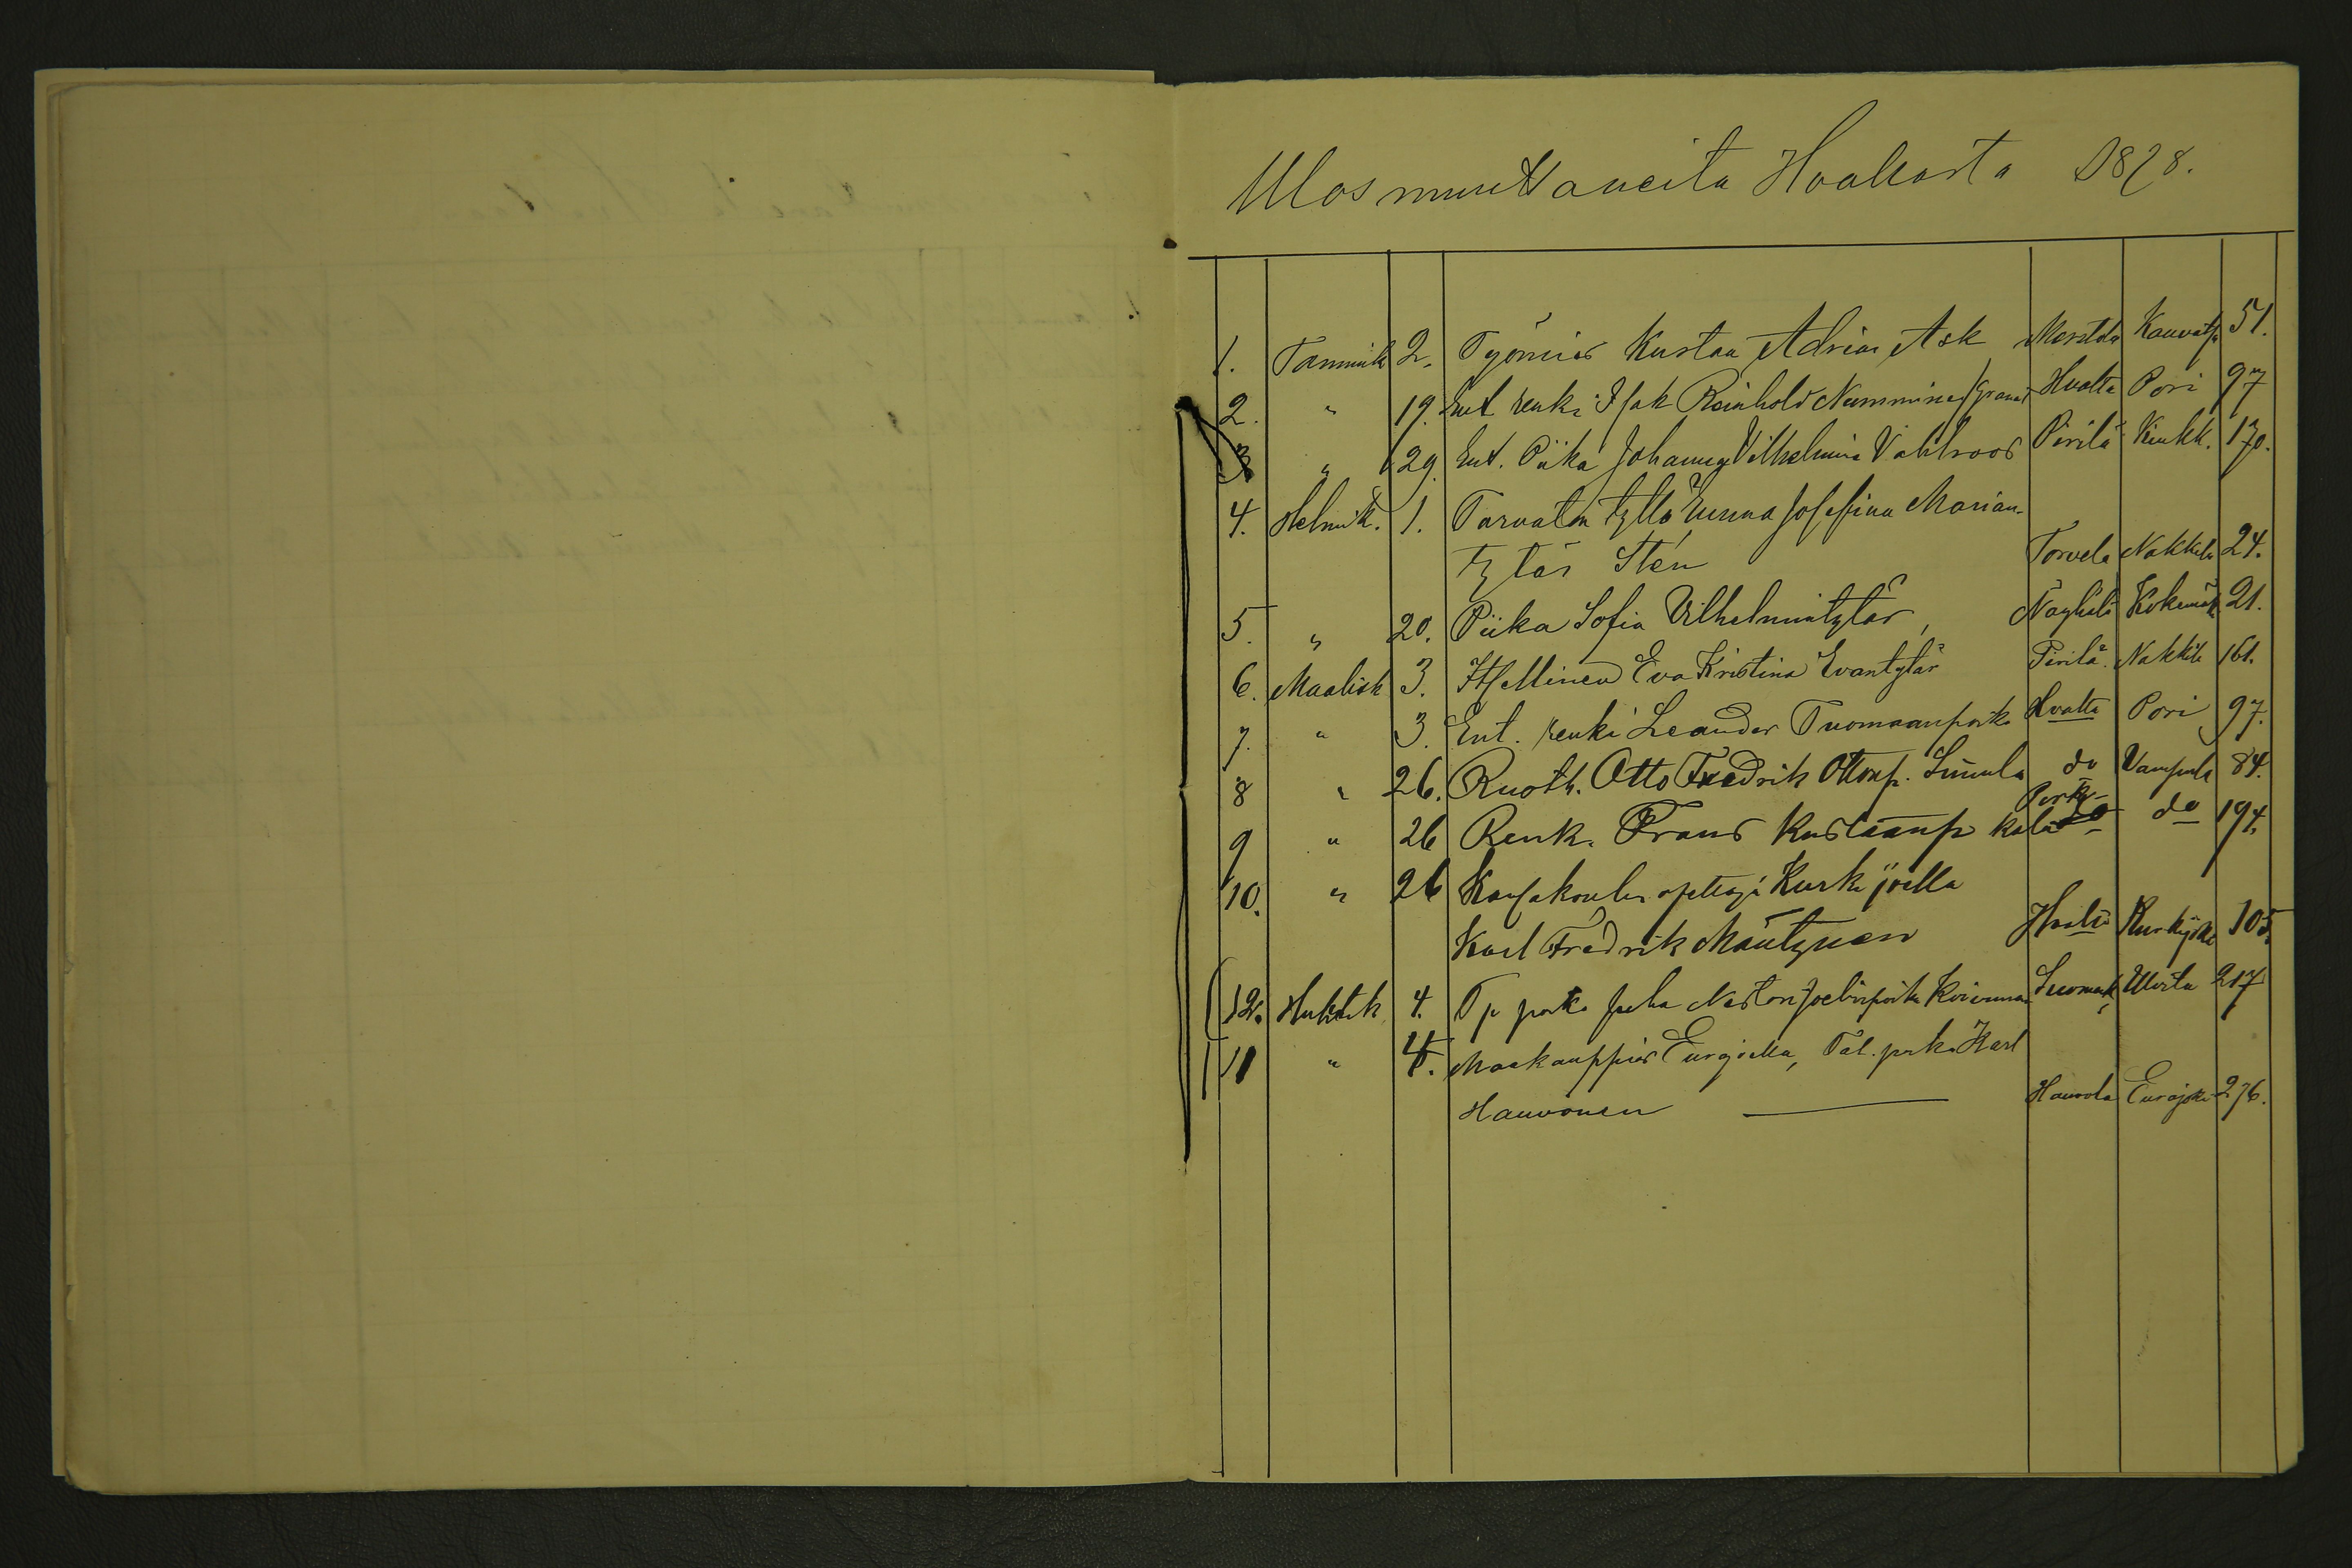 Ulosmuuttaneita 1878.
1. Tammik 2. Työmies Kustaa Adrian Ask Merstola Kauvatsa 51.
2. " 19. Ent renki Isak Reinhold Numminen Hvalta Pori 97
3 " 29. Ent. Piika Johanna Vilhelmina Vahlroos Pirilä Kiukk. 170.
4. Helmik. 1. Torvelan tyttö Emma Josefina Marian-
tytär Stén Torvela Nakkila 24.
5. " 20. Piika Sofia Vilhelmintytär, Näyhälä Kokemäk. 21.
6. Maalisk 3. Itsellinen Eva Kristina Evantytär Pirilä. Nakkila 161.
7. " 3. Ent. renki Leander Tuomaanpoika Hvatta Pori 97.
8 " 26. Ruoth. Otto Fredrik Ottonp. do Vampula 84.
9 " 26 Renk. Frans Kustaanp do 194.
10. " 26 Kansakoulun opettaja Kurkijoella
Karl Fredrik Mäntynen Kurkijoki 105.
12. Huhtik 4. Tp poika Juha Nestor Joelinpoika Koivunen Ulvila 217
11 " 4. Maakauppias Eurajoella, Tal. poika Karl
Hauvonen Hauvola Eurajoki 276.